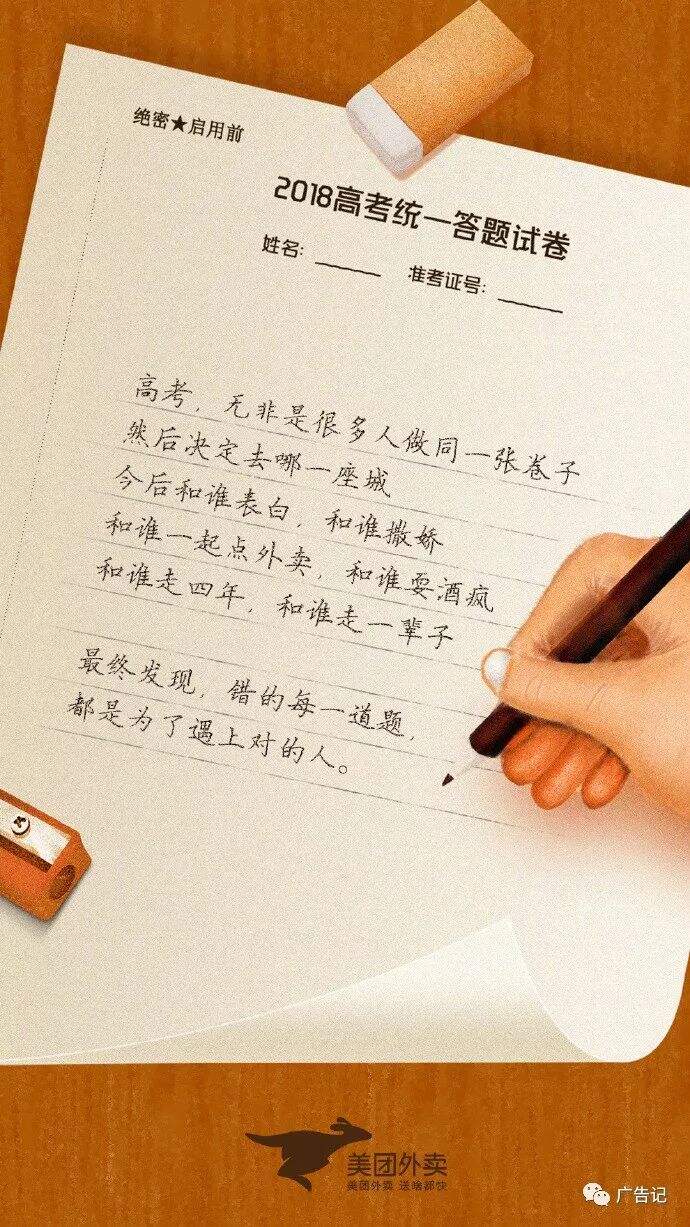 绝密★启用前
2018高考统一答题试卷
姓名: ______ 准考证号: ______
高考，无非是很多人做同一张卷子
然后决定去哪一座城
今后和谁表白，和谁撒娇
和谁一起点外卖，和谁耍酒疯
和谁走四年，和谁走一辈子
最终发现，错的每一道题，
都是为了遇上对的人。
美团外卖
美团外卖 送啥都快
广告记